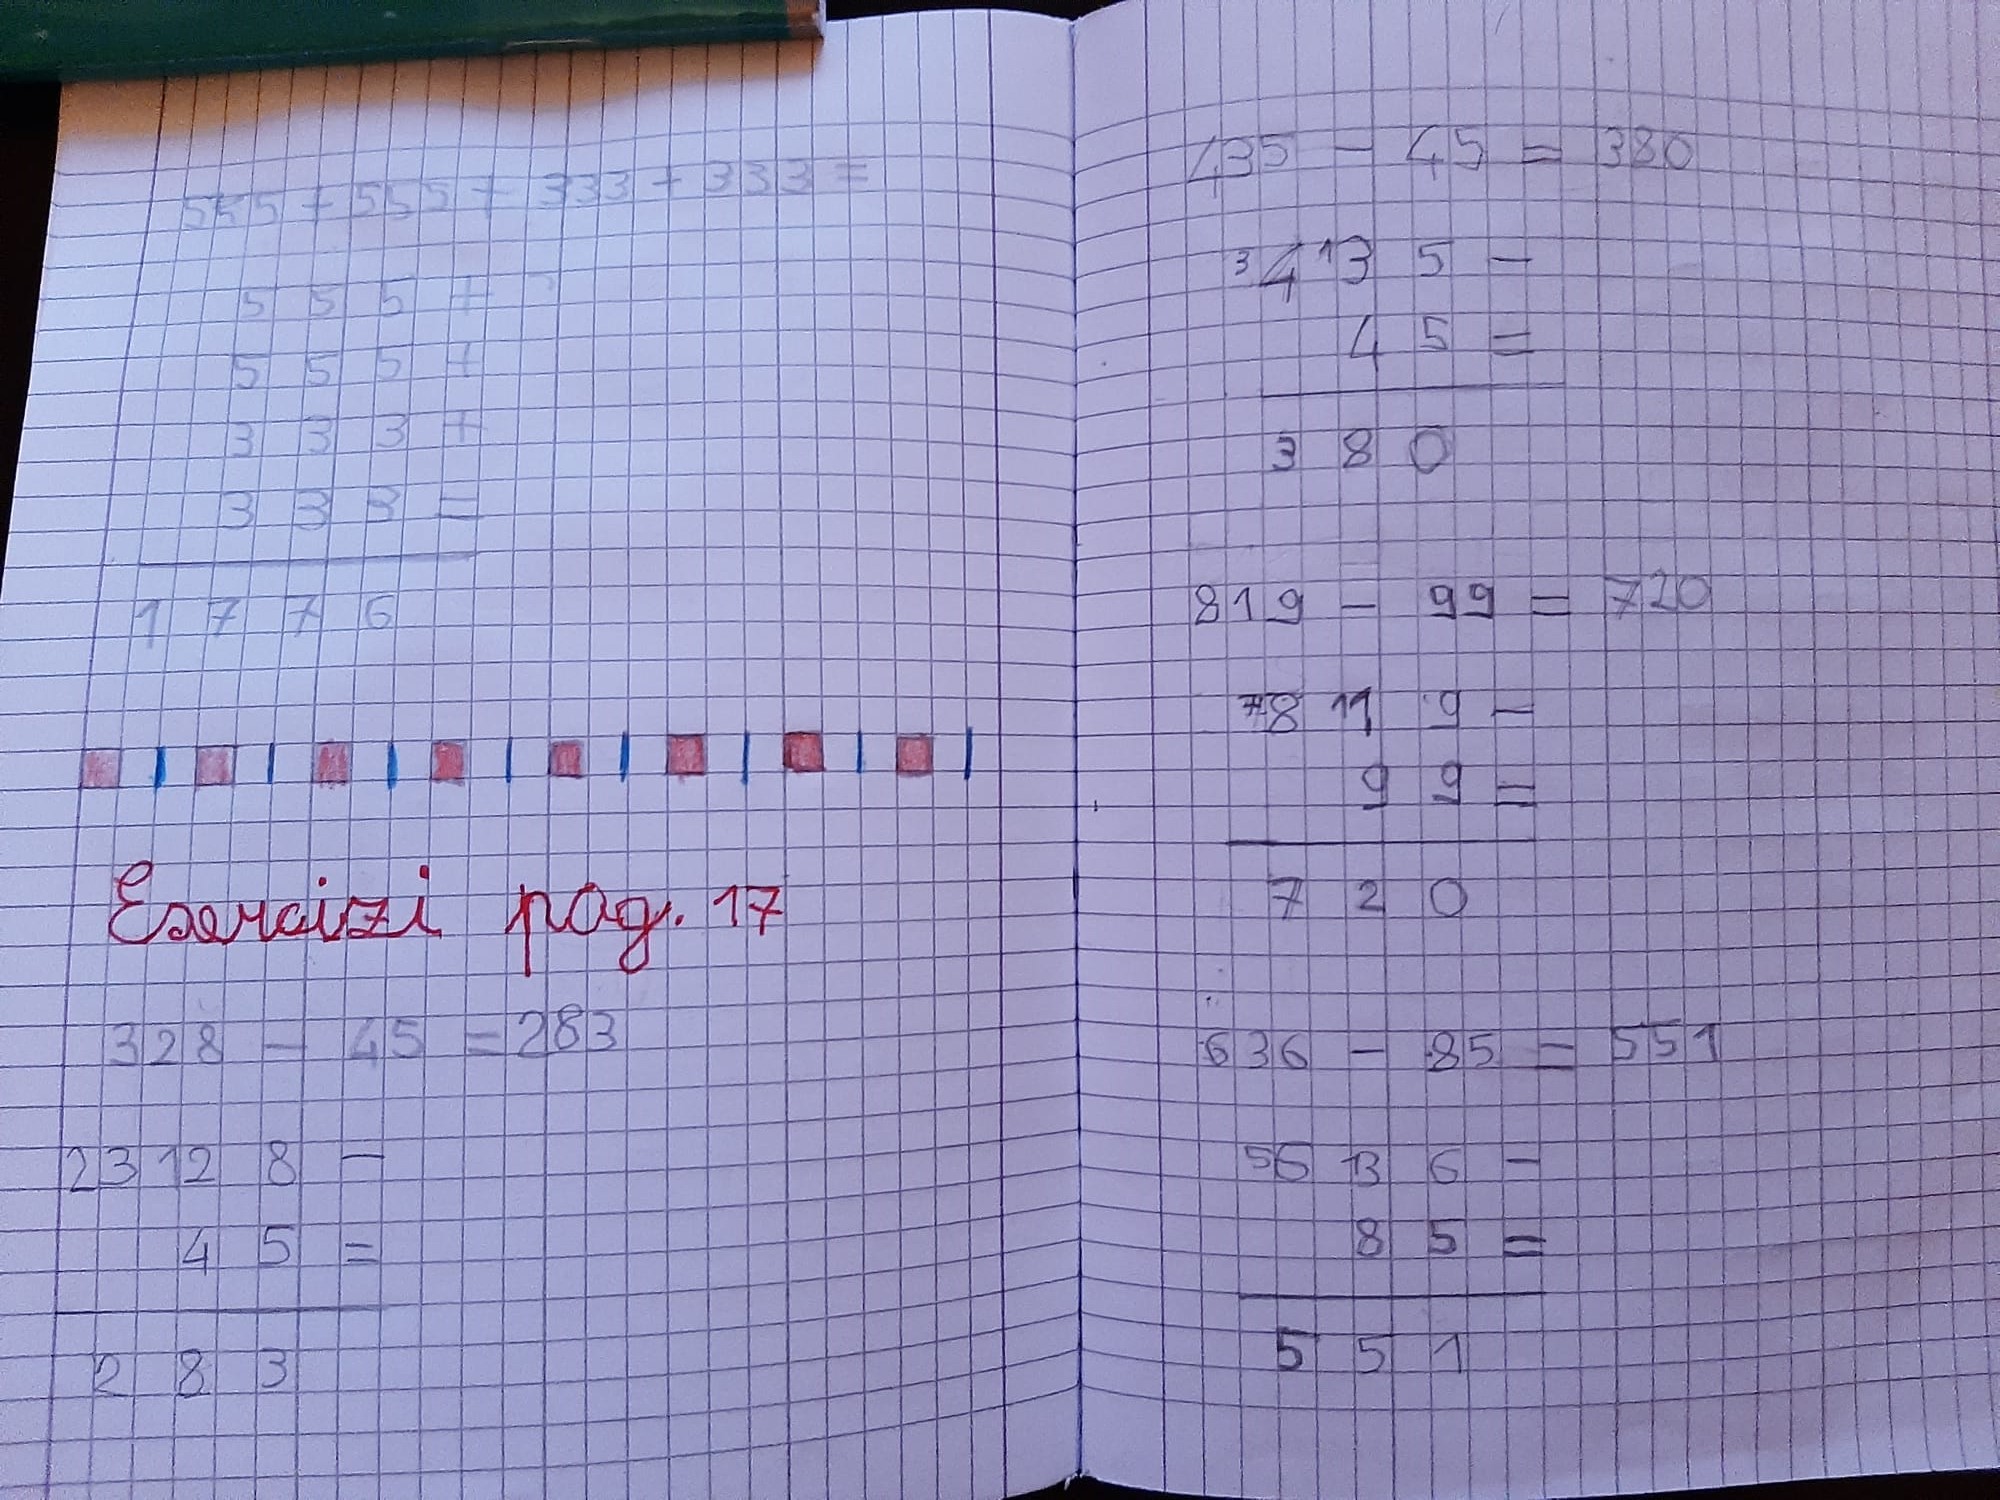 555 + 555 + 333 + 333 =
5 5 5 +
5 5 5 +
3 3 3 +
3 3 3 =
1 7 7 6
Esercizi pag. 17
328 - 45 = 283
23 12 8 -
4 5 =
2 8 3
435 - 45 = 380
34 13 5 -
4 5 =
3 8 0
819 - 99 = 720
78 11 9 -
9 9 =
7 2 0
636 - 85 = 551
56 13 6 -
8 5 =
5 5 1